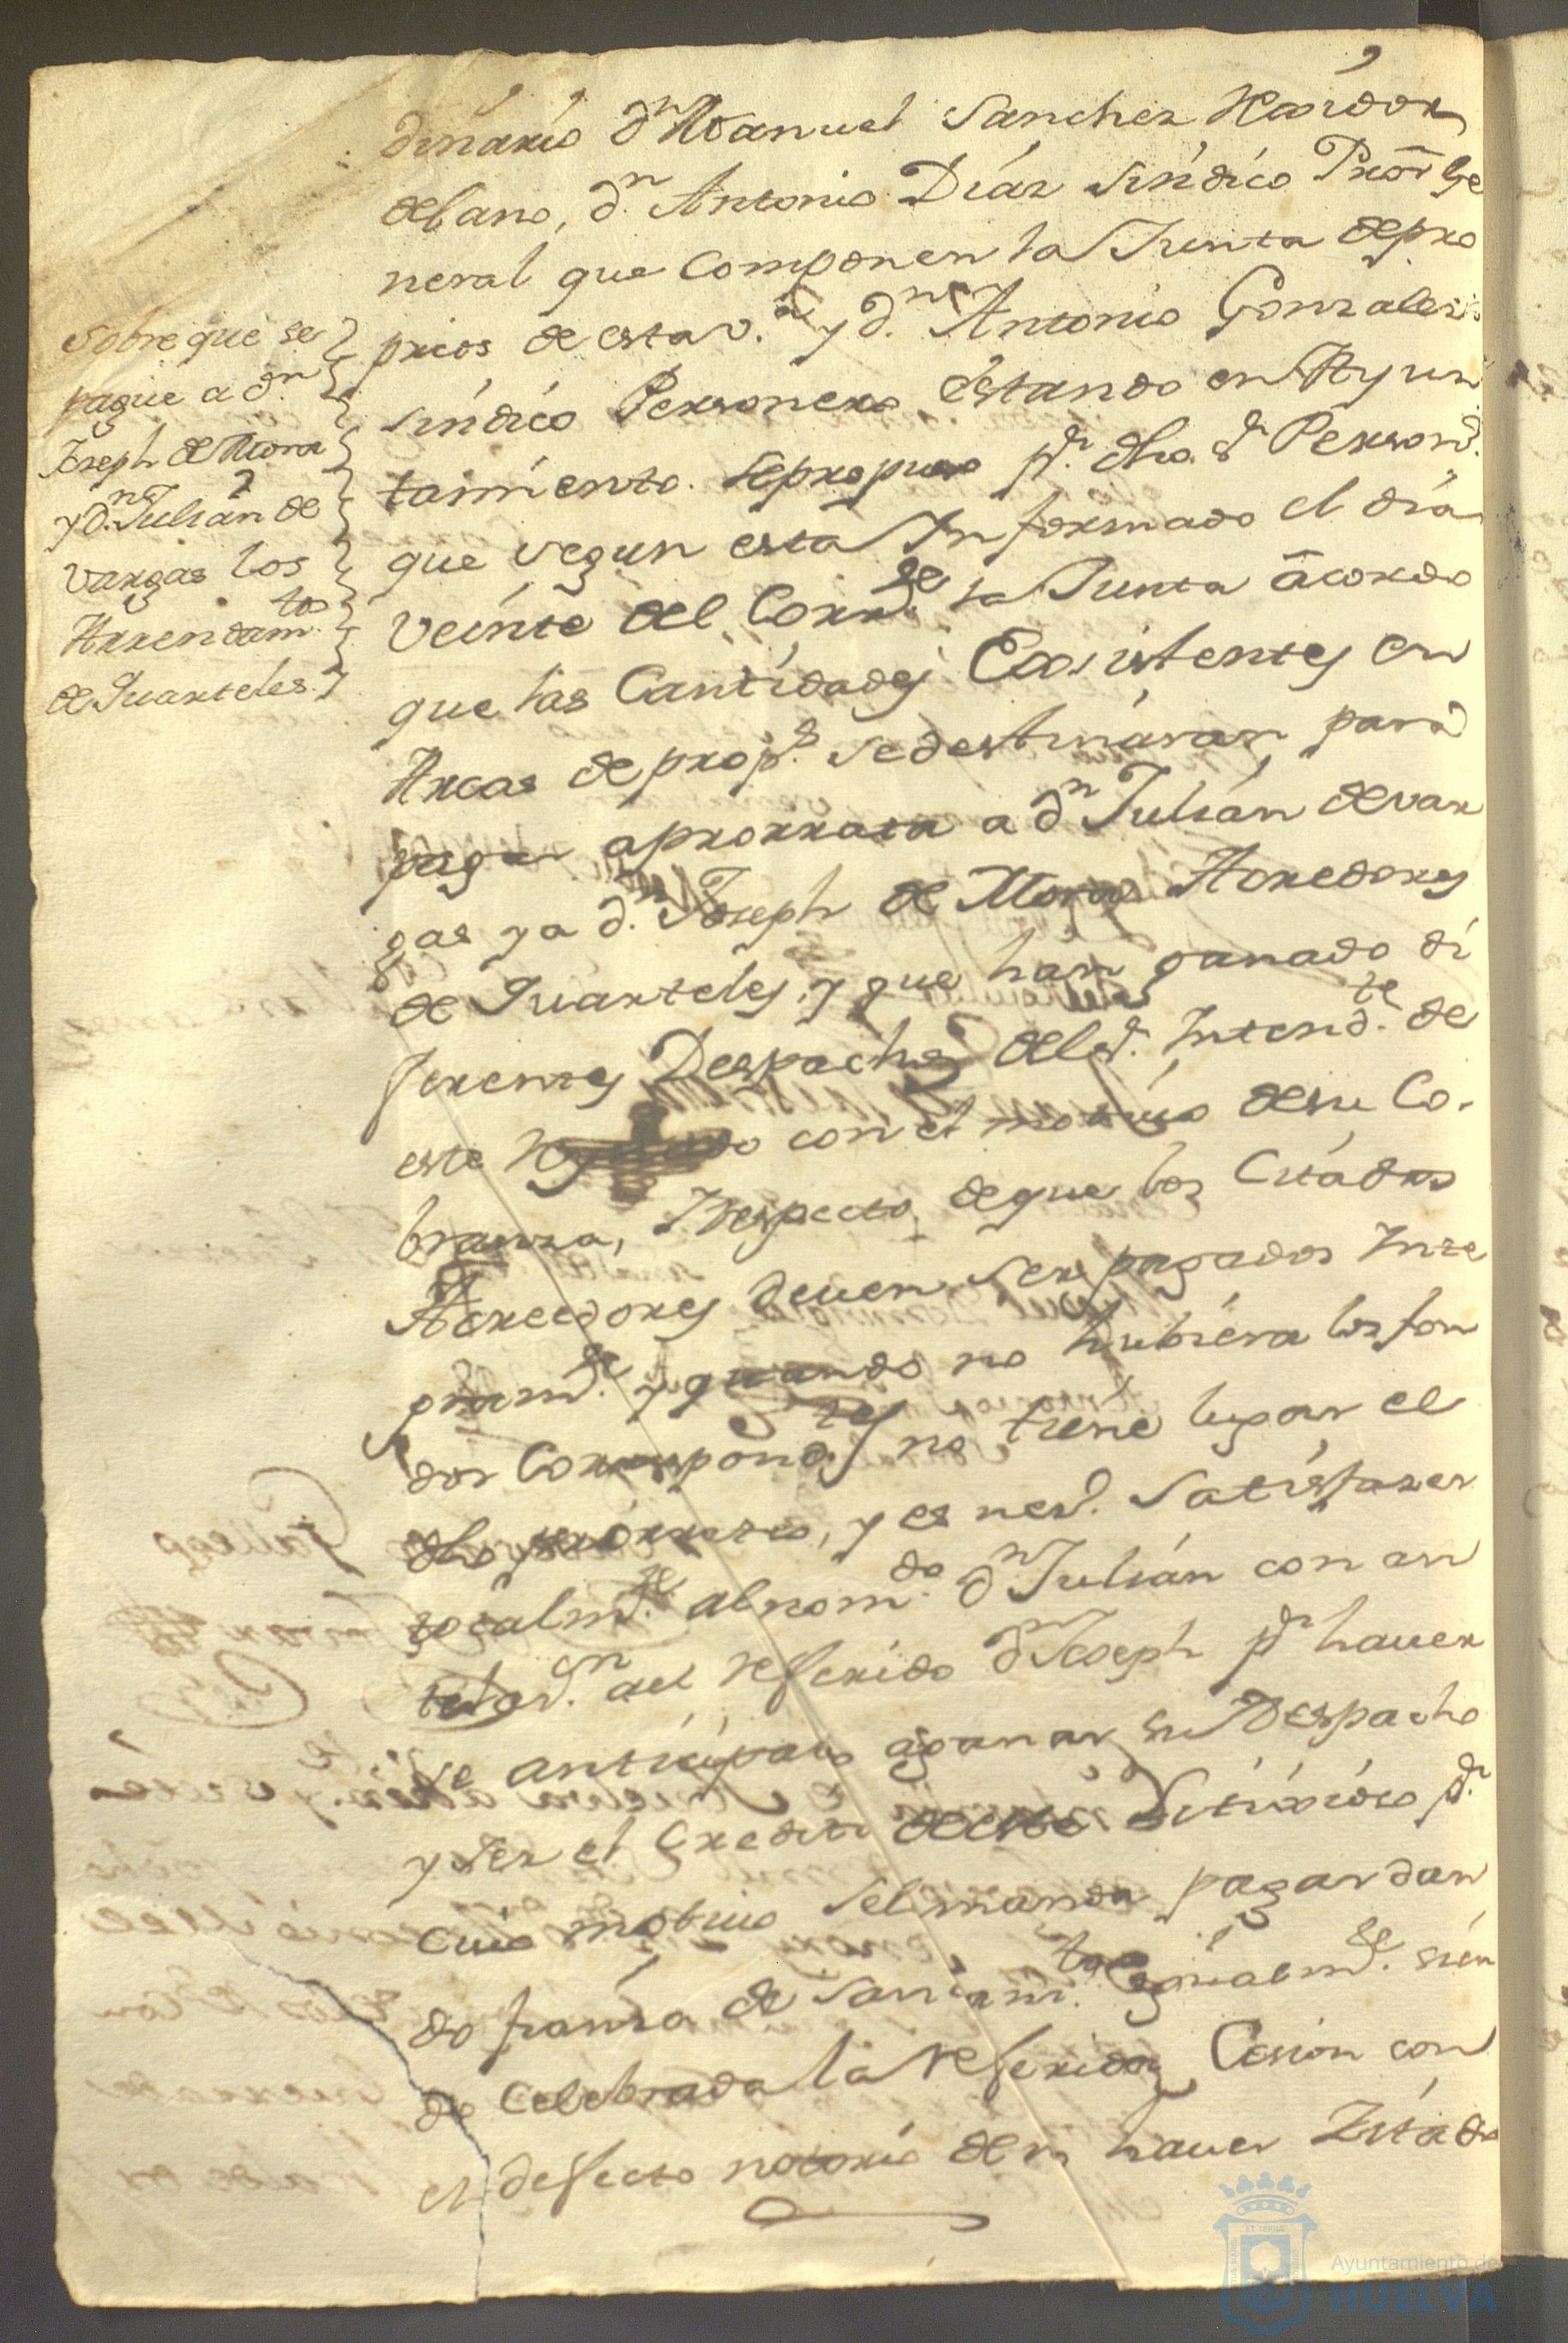 dinario dn Manuel Sanchez Rexidor
decano, dn. Antonio Diaz Sindico Pror Ge
neral que Componen la Junta de pro
prios de esta va. y dn. Antonio Gonzalez
Sindico Personero estando en Ayun
tamiento. Se propuso pr. dho. Sr Personro.
que segun esta Informado el dia
Veinte del Corrte. la Junta acordo
que las Cantidades Existentes en
Arcas de props. se destinaran para
pagar aprorrata a dn Julian de var
gas y a dn. Joseph de Mora Acredores
de Quarteles, y que han ganado di
ferentes Despachos del Sr. Intendte. de
este con el motivo de su Co-
branza, Respecto de que los Citados
Acreedores deven ser pagados Inte
gramte. y quando no hubiera los fon
dos Correspondtes no tiene lugar el
dho prorrateo, y es neso. Satisfazer
totalmte. al nomdo. dn Julian con an
telaon. al Referido dn Joseph pr haver
se anticipado a ganar su Despacho
y ser el Credito de este pr.
cuio motivo se le manda pagar dan
do fianza de Saneamto. Igualmte. sien
do Celebrada la Referida Cesion con
el defecto notorio de no haver Zitado
Sobre que se
pague a dn.
Joseph de Mora
y dn. Julian de
Vargas los
Arrendamtos
de Quarteles.
Ayuntamiento de
HUELVA